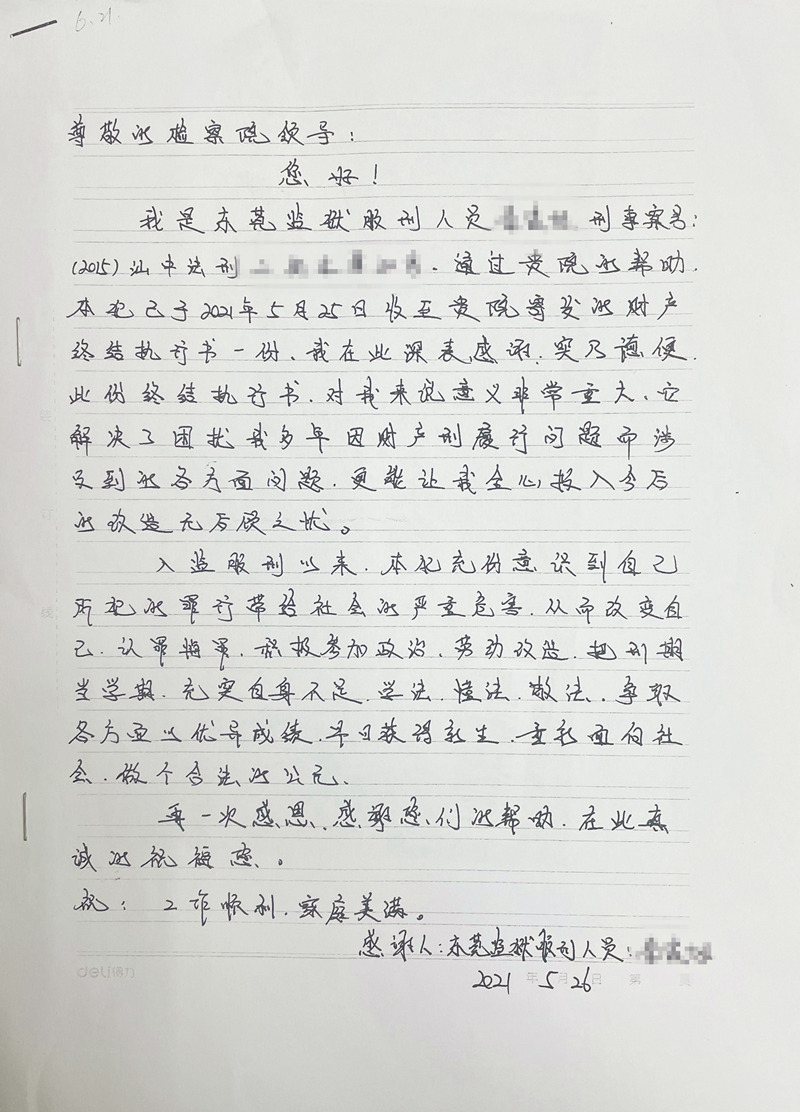 6.21
尊敬的检察院领导：
您好！
我是东莞监狱服刑人员 刑事案号：
(2015)汕中法刑 . 通过贵院的帮助.
本犯已于2021年5月25日收至贵院寄发的财产
终结执行书一份、我在此深表感谢.
此份终结执行书.对我来说意义非常重大、它
解决了困扰我多年因财产刑履行问题而涉
及到的各方面问题.更能让我全心投入今后
的改造无后顾之忧。
入监服刑以来.本犯充份意识到自己
所犯的罪行带给社会的严重危害.从而改变自
己.认罪悔罪.积极参加政治、劳动改造.把刑期
当学期.充实自身不足.学法.懂法.敬法.争取
各方面以优异成绩.早日获得新生.重新面向社
会.做个合法的公民.
再一次感恩、感谢您们的帮助.在此真
诚的祝福您。
祝：工作顺利.家庭美满。
感谢人：东莞监狱服刑人员：
2021年5月26日 第 页
deli得力
装
订
线